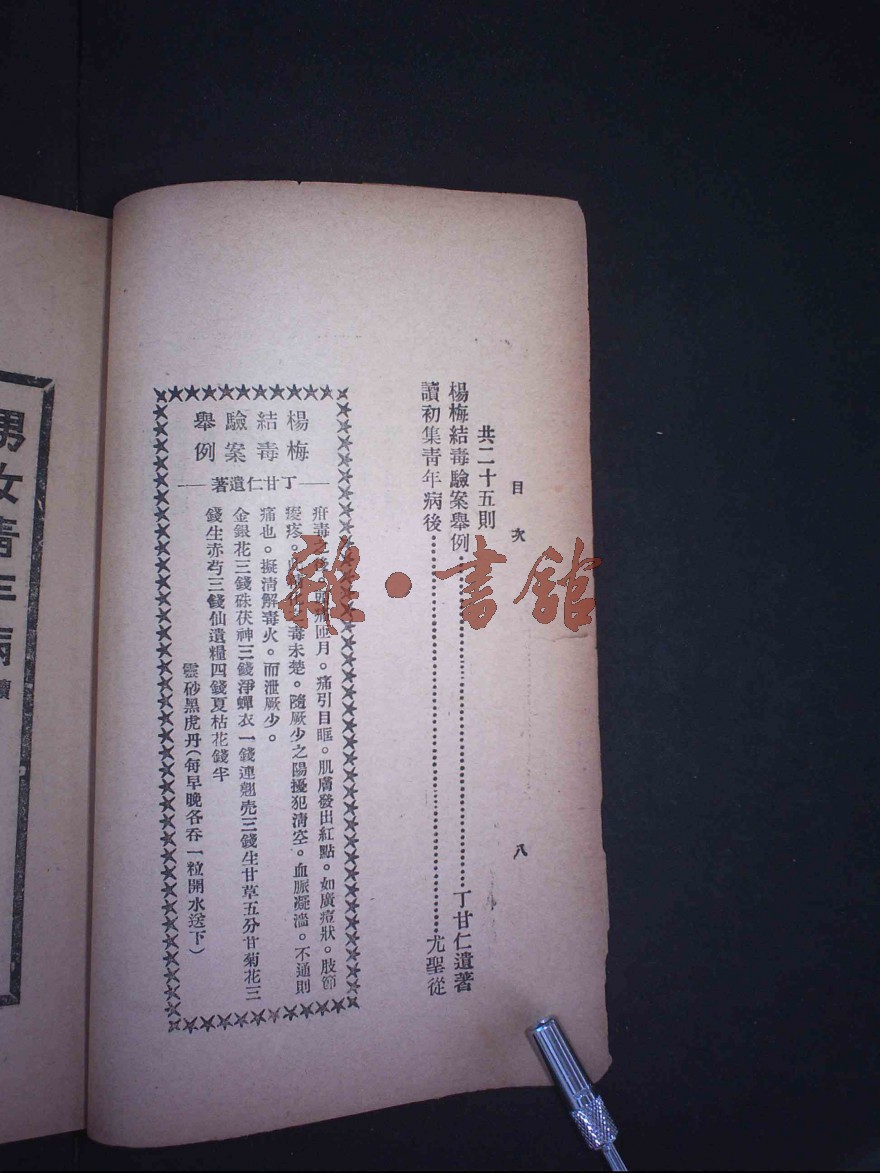 目次
八
共二十五則
楊梅結毒驗案舉例……丁甘仁遺著
讀初集青年病後……尤聖從
楊梅
結毒
驗案
舉例
丁甘仁遺著
疳毒之後。頭痛匝月。痛引目眶。肌膚發出紅點。如廣痘狀。肢節
痠疼。毒未楚。隨厥少之陽擾犯淸空。血脈凝濇。不通則
痛也。擬淸解毒火。而泄厥少。
金銀花三錢硃茯神三錢淨蟬衣一錢連翹壳三錢生甘草五分甘菊花三
錢生赤芍三錢仙遺糧四錢夏枯花錢半
雲砂黑虎丹(每早晚各吞一粒開水送下)
男女青年病
讀
雜·書館